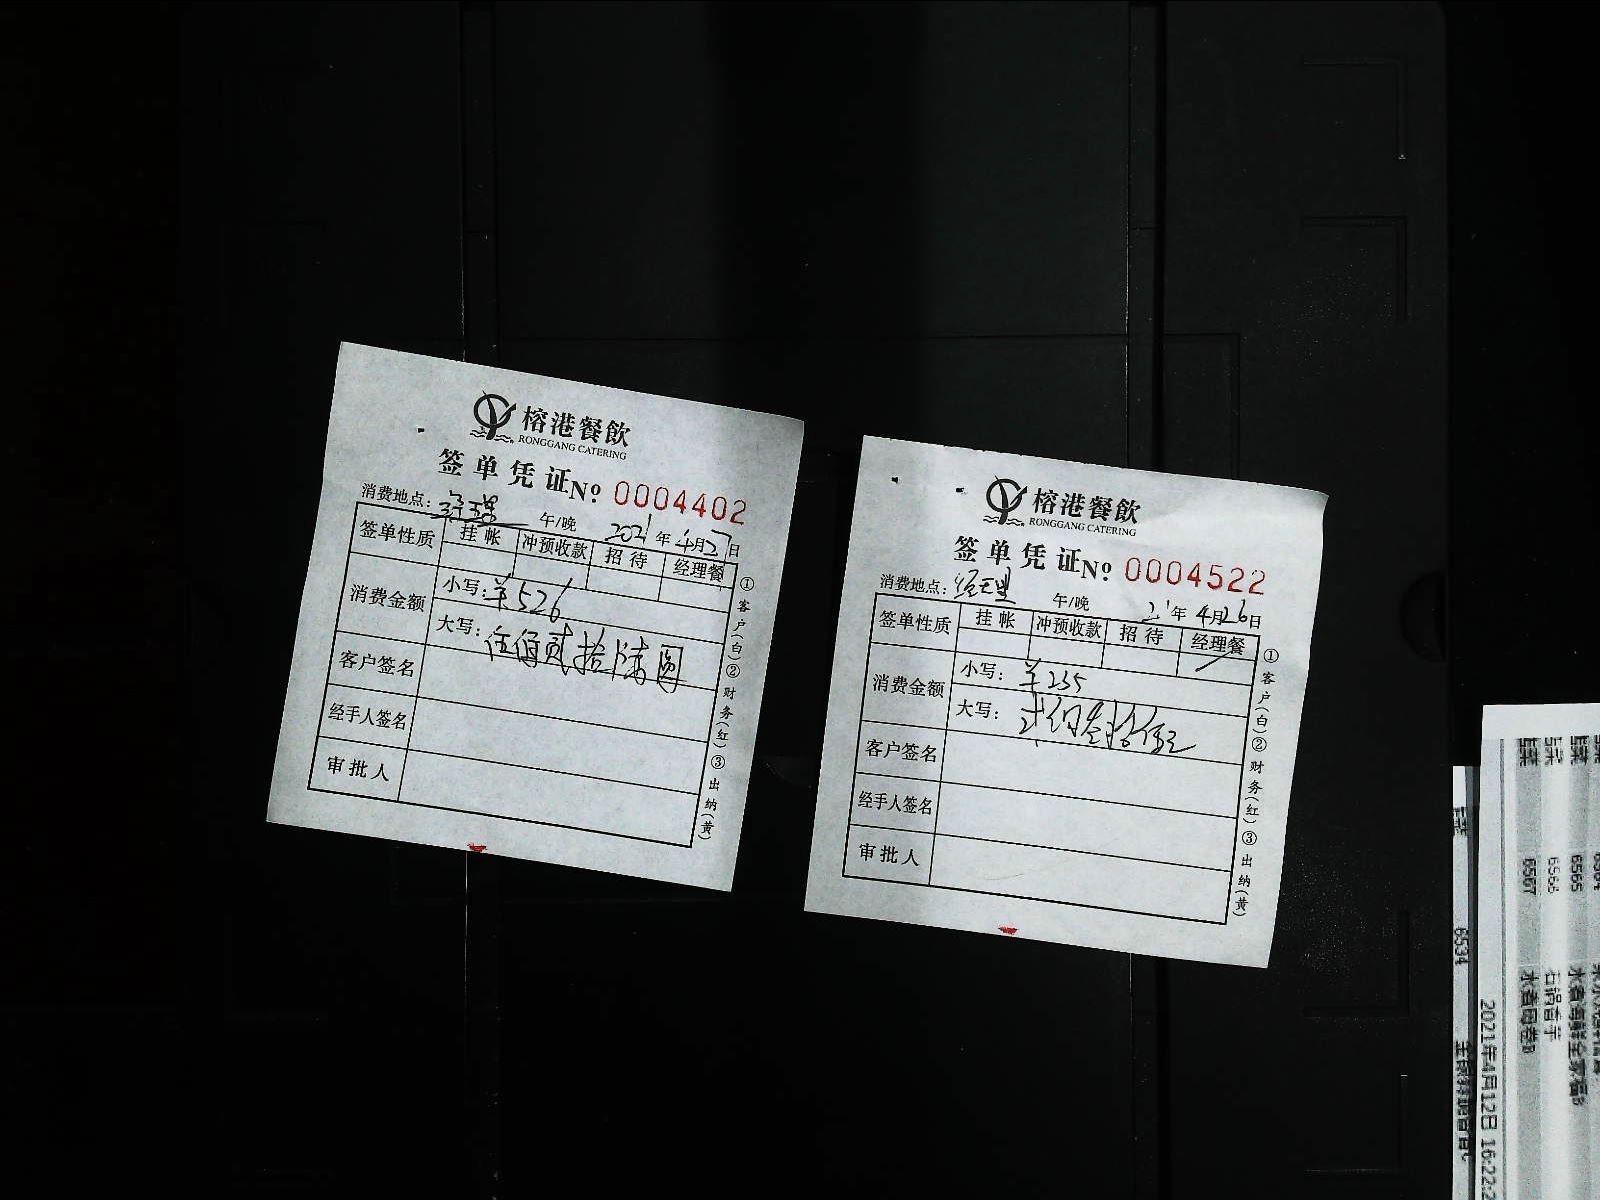 榕港餐飲
RONGGANG CATERING
签单凭证 Nº 0004402
消费地点: 午/晚 2021年4月27日
签单性质 挂帐 冲预收款 招待 经理餐
消费金额 小写: ¥526
大写: 伍佰贰拾陆圆
客户签名
经手人签名
审批人
①客户(白)②财务(红)③出纳(黄)
榕港餐飲
RONGGANG CATERING
签单凭证 Nº 0004522
消费地点: 午/晚 21年4月26日
签单性质 挂帐 冲预收款 招待 经理餐
消费金额 小写: ¥235
大写: 贰佰叁拾伍
客户签名
经手人签名
审批人
①客户(白)②财务(红)③出纳(黄)
6565 水煮海鲜全家福
6566 石锅香干
6567
6534
2021年4月12日 16:22: